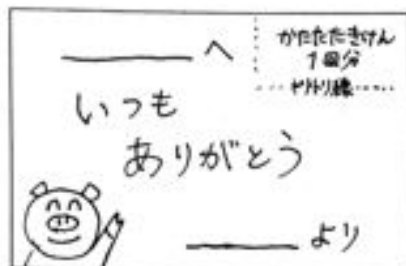 へ
かたたたきけん
1回分
キリトリ線
いつも
ありがとう
より